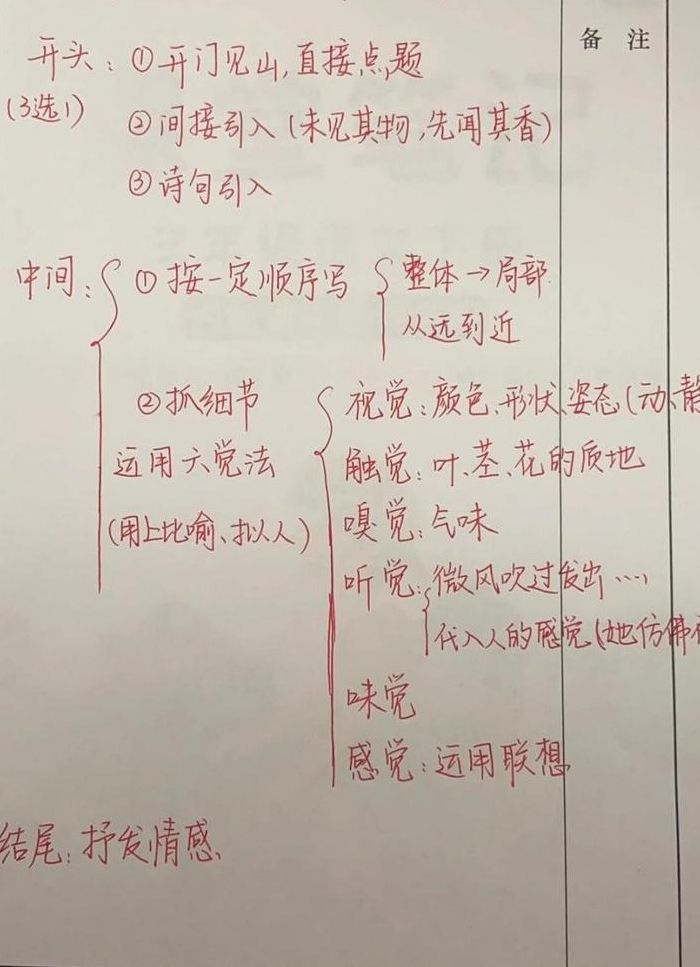 备 注
开头：①开门见山,直接点题
(3选1)
②间接引入(未见其物,先闻其香)
③诗句引入
中间：①按一定顺序写 整体→局部
从远到近
②抓细节
运用六觉法
(用上比喻、拟人)
视觉：颜色、形状、姿态(动、静
触觉：叶、茎、花的质地
嗅觉：气味
听觉：微风吹过发出……
代入人的感觉(她仿佛在
味觉
感觉：运用联想
结尾：抒发情感